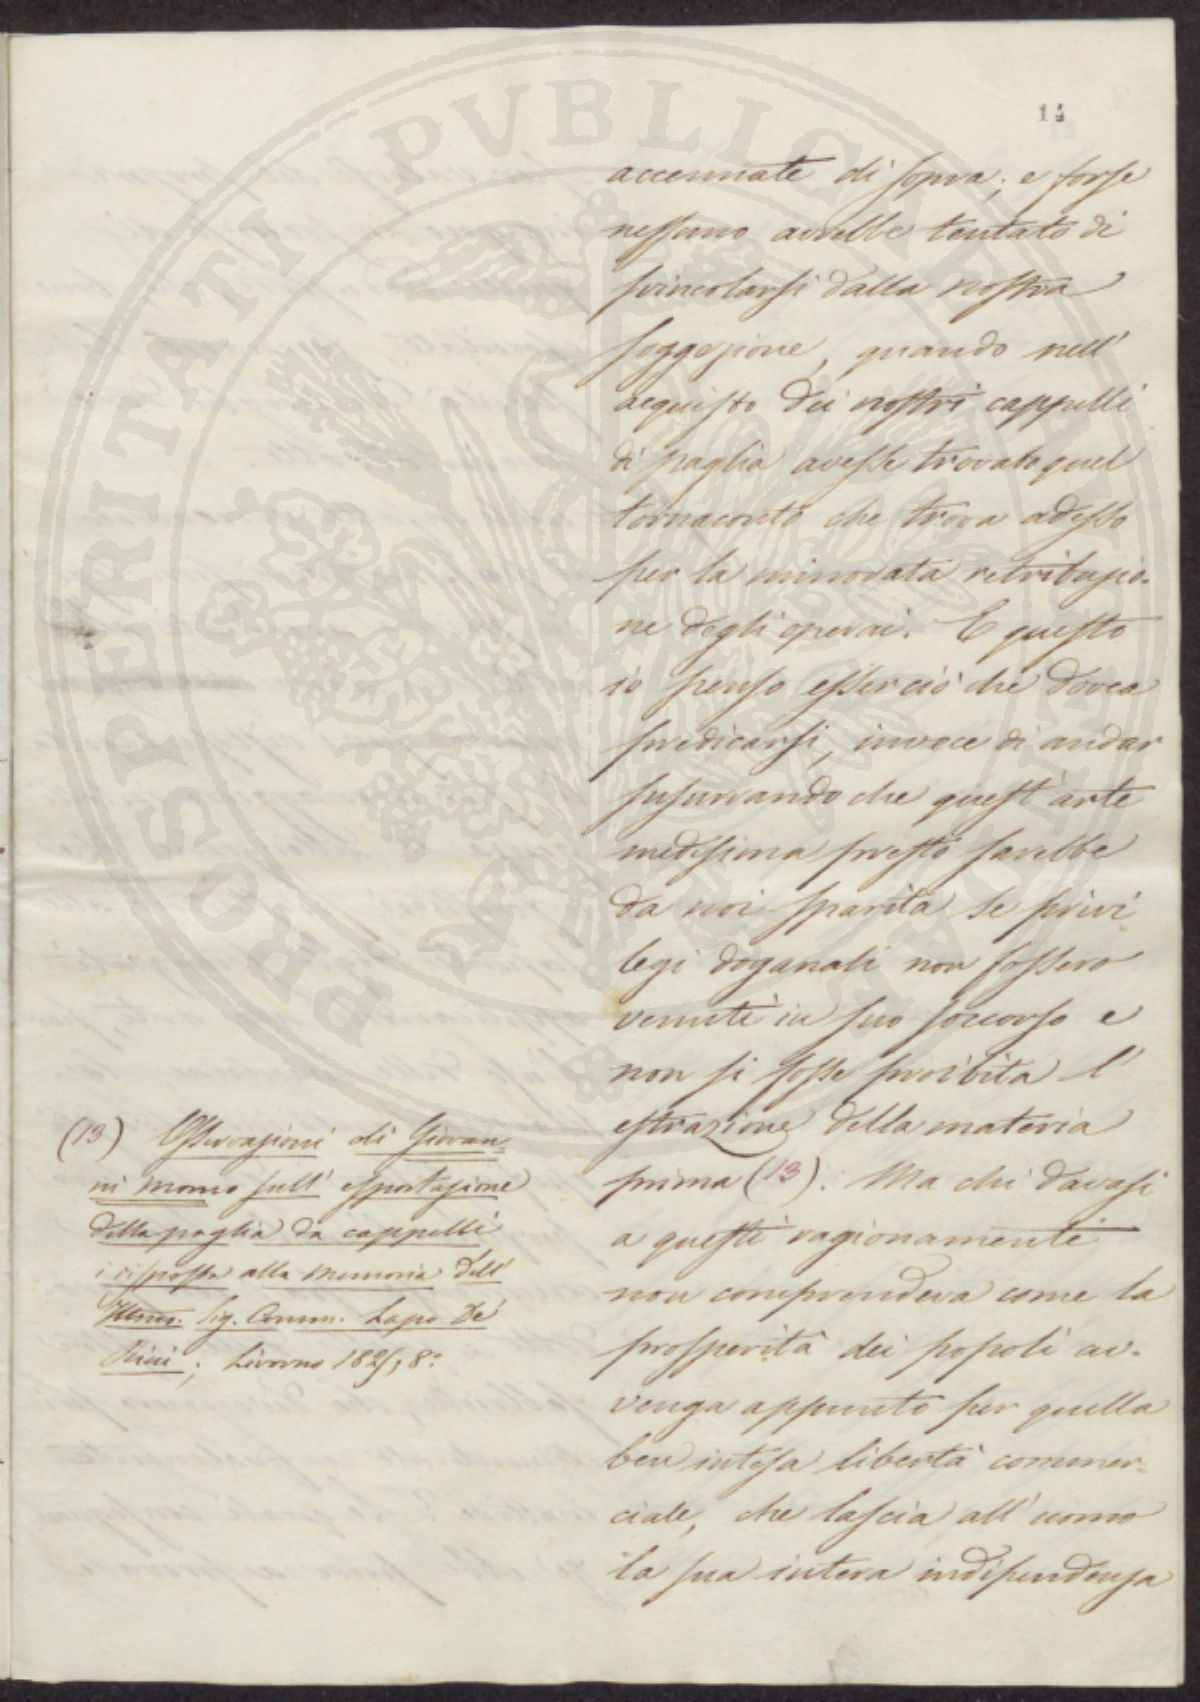 14
accennate di sopra; e forse
nessuno avrebbe tentato di
svincolarsi dalla nostra
soggezione, quando nell'
acquisto dei nostri cappelli
di paglia avesse trovato quel
tornaconto che trova adesso
per la minorata retribuzio-
ne degli operai. E questo
io penso esser ciò che dovea
predicarsi, invece di andar
susurrando che quest'arte
medesima presto sarebbe
da noi sparita se privi
legi doganali non fossero
venuti in suo soccorso e
non si fosse proibita l'
estrazione della materia
prima (13). Ma chi davasi
a questi ragionamenti
non comprendeva come la
prosperità dei popoli av-
venga appunto per quella
ben intesa libertà commer-
ciale, che lascia all'uomo
la sua intera indipendenza
(13) Osservazioni di Giovan-
ni Momo sull' esportazione
della paglia da cappelli
i risposta alla memoria dell'
Illmo. Sig. Comm. Lapo de'
Ricci; Livorno 182, 8.°
PROSPERITATI PVBLICAE